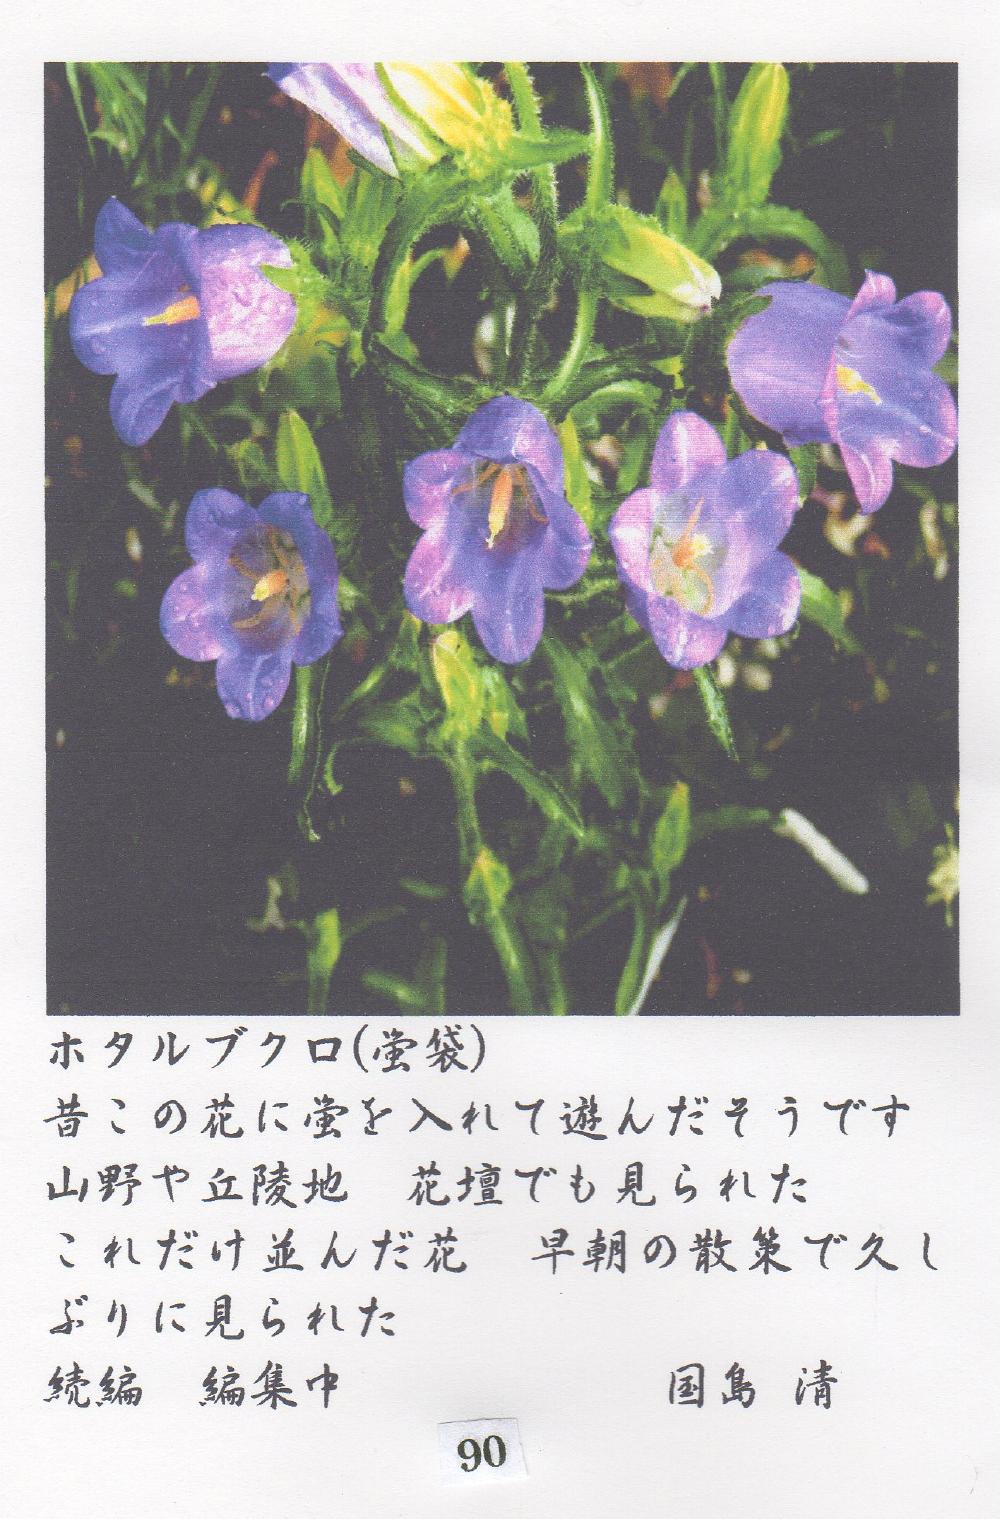 ホタルブクロ(蛍袋)
昔この花に蛍を入れて遊んだそうです
山野や丘陵地　花壇でも見られた
これだけ並んだ花　早朝の散策で久し
ぶりに見られた
続編　編集中　国島 清
90